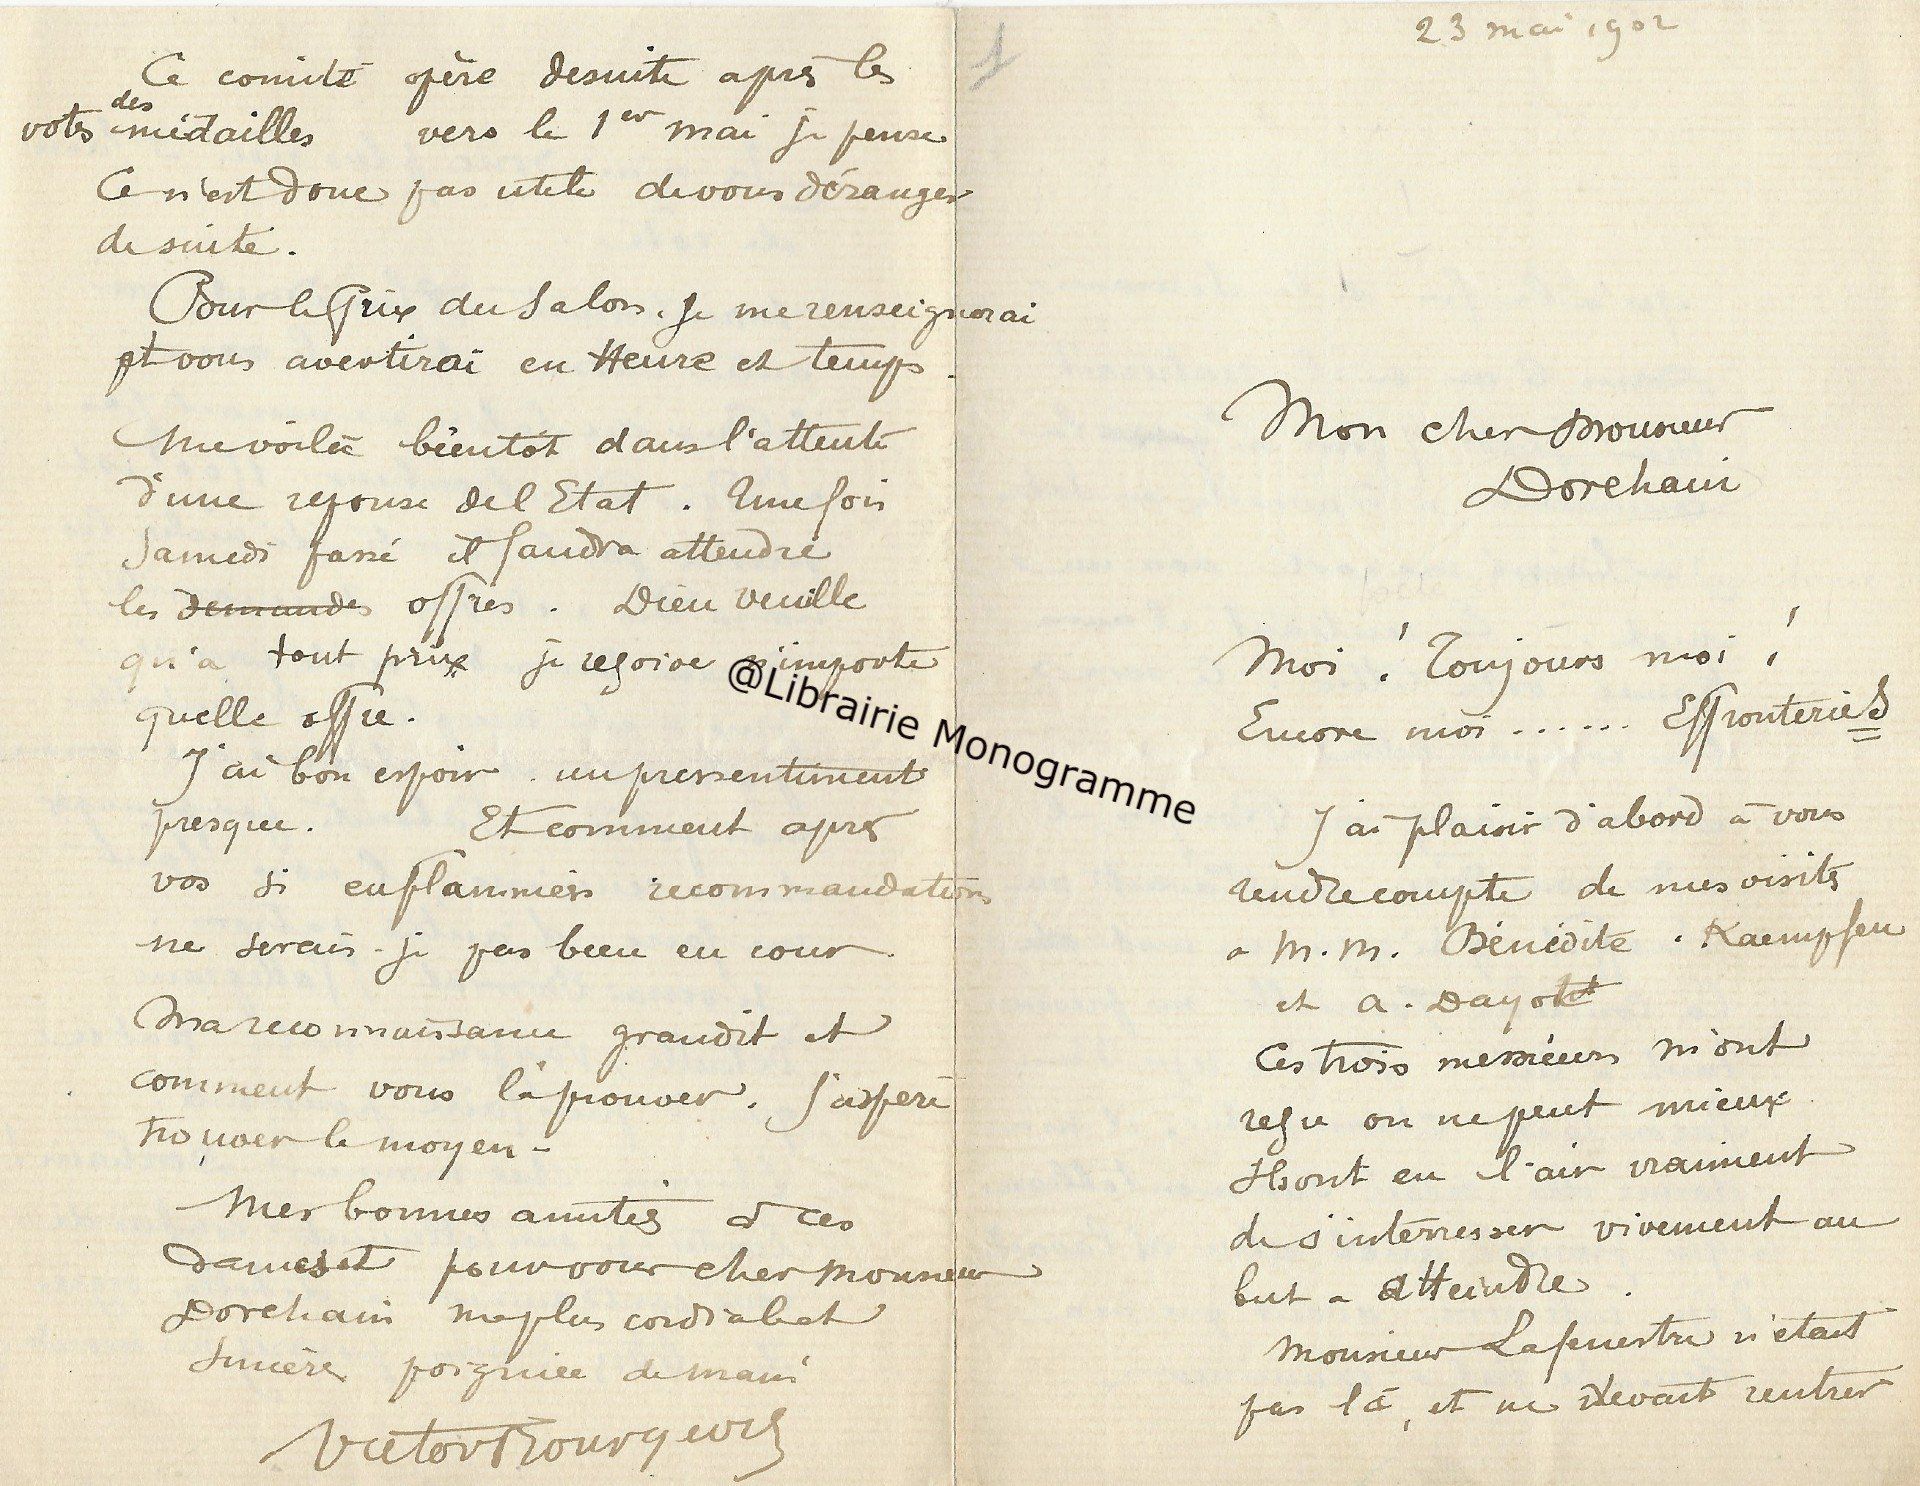 Ce comité opère desuite après les
votes des médailles vers le 1er mai je pense
Ce n'est donc pas utile de vous déranger
de suite.
Pour le Prix du Salon. Je me renseignerai
et vous avertirai en Heure et temps.
Me voilà bientôt dans l'attente
d'une reponse de l'Etat. Une fois
Samedi passé il faudra attendre
les demandes offres. Dieu veuille
qu'a tout prix je reçoive n'importe
quelle offre.
J'ai bon espoir. un pressentiment
presque. Et comment après
vos si enflammées recommandations
ne serais-je pas bien en cour.
Ma reconnaissance grandit et
comment vous la prouver. J'espère
trouver le moyen -
Mes bonnes amitiés à ces
dames et pour vous cher Monsieur
Dorchain ma plus cordiale et
sincère poignée de main
Victor Bourgeois
1
23 mai 1902
Mon cher Monsieur
Dorchain
Moi ! Toujours moi !
Encore moi ...... Effronteries
J'ai plaisir d'abord à vous
rendre compte de mes visites
a M.M. Bénédite. Kaempfen
et A. Dayot
Ces trois messieurs m'ont
reçu on ne peut mieux
Ils ont eu l'air vraiment
de s'intéresser vivement au
but a atteindre.
Monsieur Lafenestre n'était
pas là, et ne devait rentrer
@Librairie Monogramme